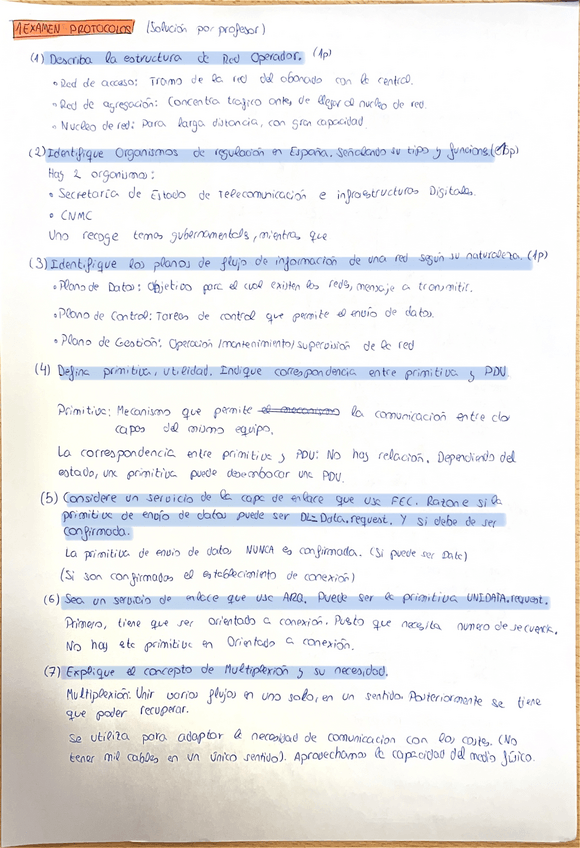 1EXAMEN PROTOCOLOS (Solución por profesor)
(1) Describa la estructura de Red Operador. (1p)
• Red de acceso: Tramo de la red del abonado con la central.
• Red de agregación: Concentra trafico antes de llegar al nucleo de red.
• Nucleo de red: Para larga distancia, con gran capacidad.
(2) Identifique Organismos de regulación en España. Señalando su tipo y funciones.
Hay 2 organismos:
• Secretaria de Estado de Telecomunicación e infraestructuras Digitales.
• CNMC
Uno recoge temas gubernamentals, mientras que
(3) Identifique los planos de flujo de información de una red según su naturaleza. (1p)
• Plano de Datos: Objetivo para el cual existen las redes, mensaje a transmitir.
• Plano de Control: Tareas de control que permite el envio de datos.
• Plano de Gestión: Operación/mantenimiento/supervisión de la red
(4) Defina primitiva, utilidad. Indique correspondencia entre primitiva y PDU
Primitiva: Mecanismo que permite el mecanismo la comunicación entre dos
capas del mismo equipo.
La correspondencia entre primitiva y PDU: No hay relación. Dependiendo del
estado, una primitiva puede desembocar una PDU.
(5) Considere un servicio de la capa de enlace que usa FEC. Razone si la
primitiva de envío de datos puede ser DL-Data.request. Y si debe de ser
confirmada.
La primitiva de envio de datos NUNCA es confirmada. (Si puede ser Data)
(Si son confirmadas el establecimiento de conexión)
(6) Sea un servicio de enlace que usa ARQ. Puede ser la primitiva UNIDATA.request.
Primero, tiene que ser orientado a conexión. Puesto que necesita numero de secuencia.
No hay esta primitiva en Orientado a conexión.
(7) Explique el concepto de Multiplexión y su necesidad.
Multiplexión: Unir varios flujos en uno solo, en un sentido. Posteriormente se tiene
que poder recuperar.
Se utiliza para adaptar la necesidad de comunicación con los costes. (No
tener mil cables en un único sentido). Aprovechamos la capacidad del medio físico.